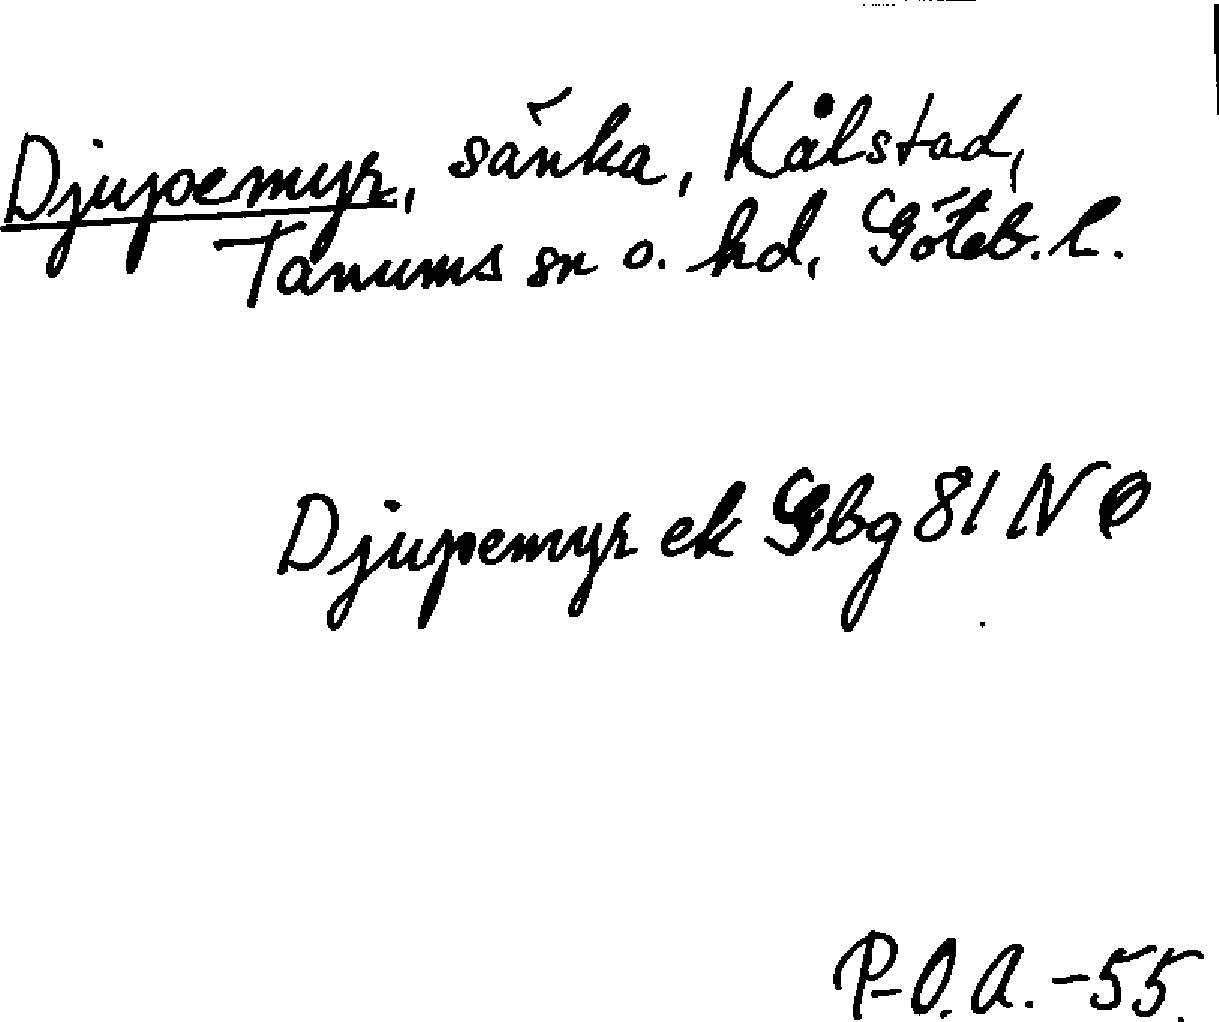 Djupemyr, sänka, Kålstad,
Tanums sn o. hd, Göteb. l.
Djupemyr ek Gbg 81 NO
P-O.A. -55.